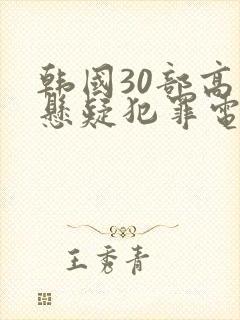 韩国30部高
悬疑犯罪電
王秀青